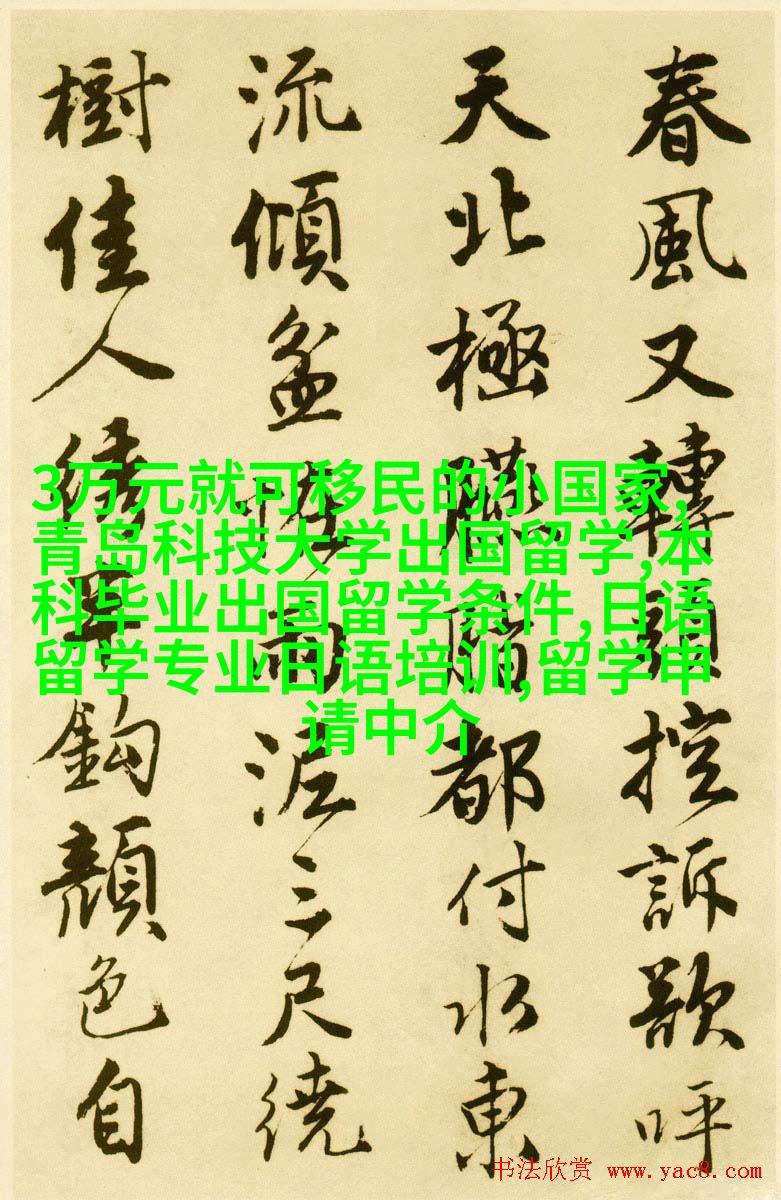 春風又轉頭控訴歌呼
天北極都付水東
流傾盆雨泥三尺繞
樹佳人鉤顏色自
3万元就可移民的小国家,
青岛科技大学出国留学,本
科毕业出国留学条件,日语
留学专业日语培训,留学申
请中介
书法欣赏 www.yac8.com